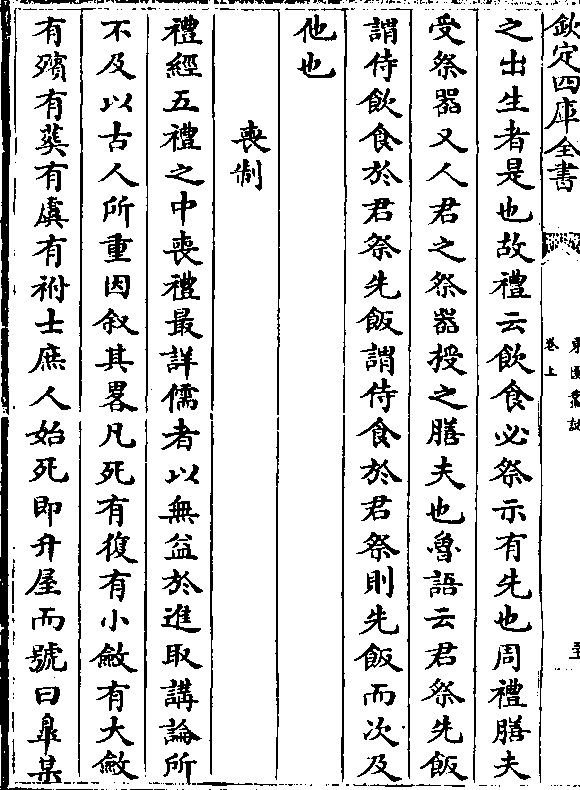 欽定四庫全書
卷上
之出生者是也故禮云飲食必祭示有先也周禮膳夫
受祭器又人君之祭器授之膳夫也魯語云君祭先飯
謂侍飲食於君祭先飯謂侍食於君祭則先飯而次及
他也
喪制
禮經五禮之中喪禮最詳儒者以無益於進取講論所
不及以古人所重因叙其畧凡死有復有小斂有大斂
有殯有葬有虞有祔士庶人始死即升屋而號曰臯某